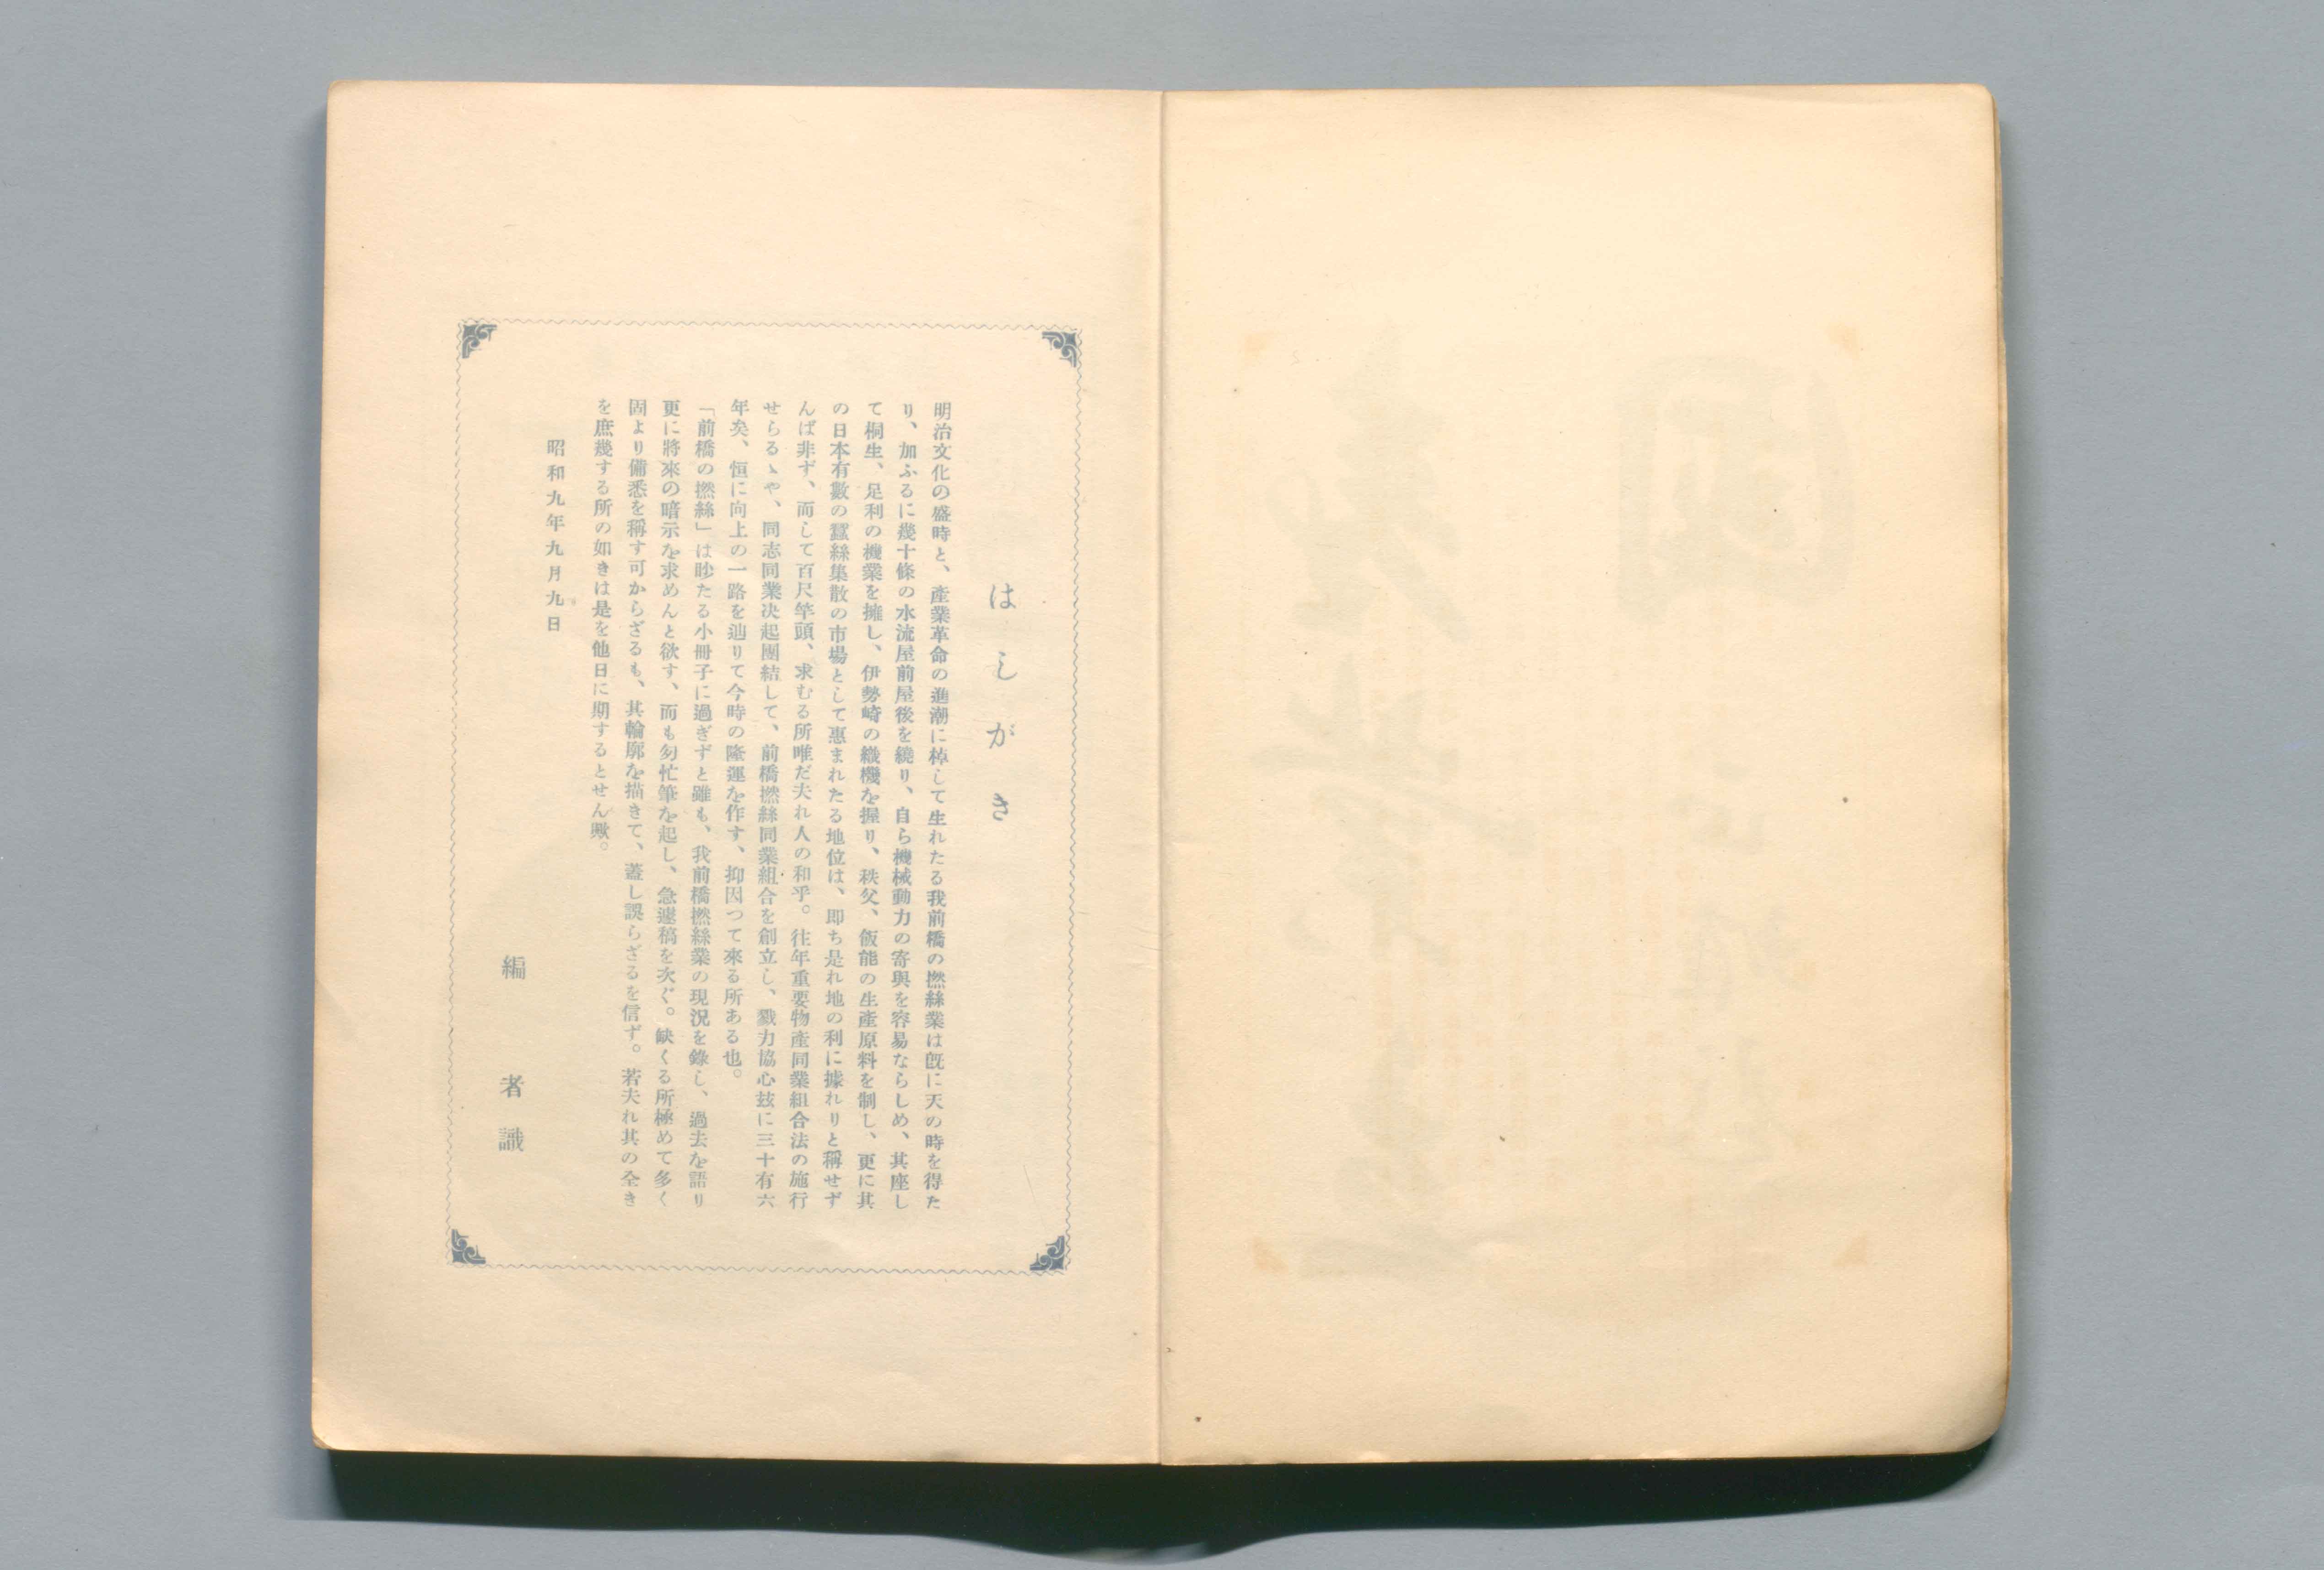 はしがき
明治文化の盛時と、産業革命の進潮に棹して生れたる我前橋の撚絲業は既に天の時を得た
り、加ふるに幾十條の水流屋前屋後を繞り、自ら機械動力の寄與を容易ならしめ、其座し
て桐生、足利の機業を擁し、伊勢崎の織機を握り、秩父、飯能の生産原料を制し、更に其
の日本有數の蠶絲集散の市場として惠まれたる地位は、即ち是れ地の利に據れりと稱せず
んば非ず、而して百尺竿頭、求むる所唯だ夫れ人の和乎。往年重要物產同業組合法の施行
せらるゝや、同志同業决起團結して、前橋撚絲同業組合を創立し、戮力協心玆に三十有六
年矣、恒に向上の一路を辿りて今時の隆運を作す、抑因つて來る所ある也。
「前橋の撚絲」は眇たる小冊子に過ぎずと雖も、我前橋撚絲業の現況を錄し、過去を語り
更に將來の暗示を求めんと欲す、而も匆忙筆を起し、急遽稿を次ぐ。缺くる所極めて多く
固より備悉を稱す可からざるも、其輪廓を描きて、蓋し誤らざるを信ず。若夫れ其の全き
を庶幾する所の如きは是を他日に期するとせん歟。
昭和九年九月九日
編者識